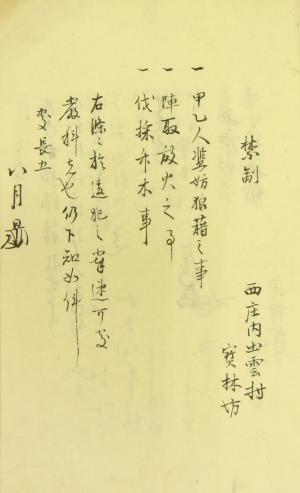 禁制
西庄内出雲村
寳林坊
一甲乙人監妨狼藉之事
一陣取放火之事
一伐採竹木事
右條〻於違犯之輩速可處
嚴科者也仍下知如件
慶長五
八月